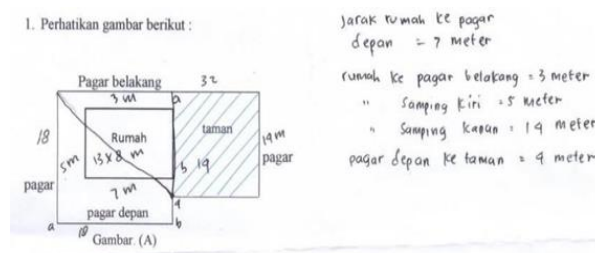 1. Perhatikan gambar berikut :
Pagar belakang 32
3 m a
18 Rumah taman 19 m
13 x 8 m
5 m 19 pagar
pagar 7 m 4
pagar depan
a b
Gambar. (A)
Jarak rumah ke pagar
depan = 7 meter
rumah ke pagar belakang = 3 meter
" Samping kiri = 5 meter
" Samping kanan = 14 meter
pagar depan ke taman = 4 meter